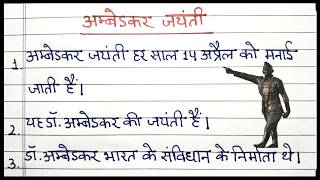 अम्बेडकर जयंती
1. अम्बेडकर जयंती हर साल 14 अप्रैल को मनाई
जाती हैं।
2. यह डॉ. अम्बेडकर की जयंती हैं।
3. डॉ. अम्बेडकर भारत के संविधान के निर्माता थे।